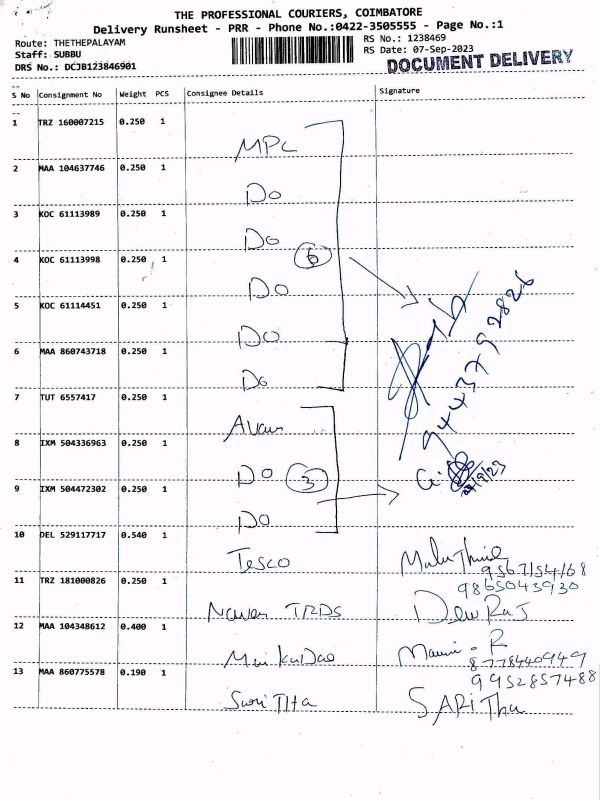 THE PROFESSIONAL COURIERS, COIMBATORE
Delivery Runsheet - PRR - Phone No.:0422-3505555 - Page No.:1
Route: THETHEPALAYAM
RS No.: 1238469
Staff: SUBBU
RS Date: 07-Sep-2023
DRS No.: DCJB123846901
DOCUMENT DELIVERY
S No Consignment No Weight PCS Consignee Details Signature
1 TRZ 160007215 0.250 1
MPC
2 MAA 104637746 0.250 1
Do
3 KOC 61113989 0.250 1
Do
6
4 KOC 61113998 0.250 1
Do
5 KOC 61114451 0.250 1
Do
6 MAA 860743718 0.250 1
Do
9443792826
7 TUT 6557417 0.250 1
8 IXM 504336963 0.250 1
Do 3
9 IXM 504472302 0.250 1
Do
10 DEL 529117717 0.540 1
Tesco
9865043930
11 TRZ 181000826 0.250 1
TRDS Dev Raj
12 MAA 104348612 0.400 1
R
8778440949
13 MAA 860775578 0.190 1
9952857488
SARITha